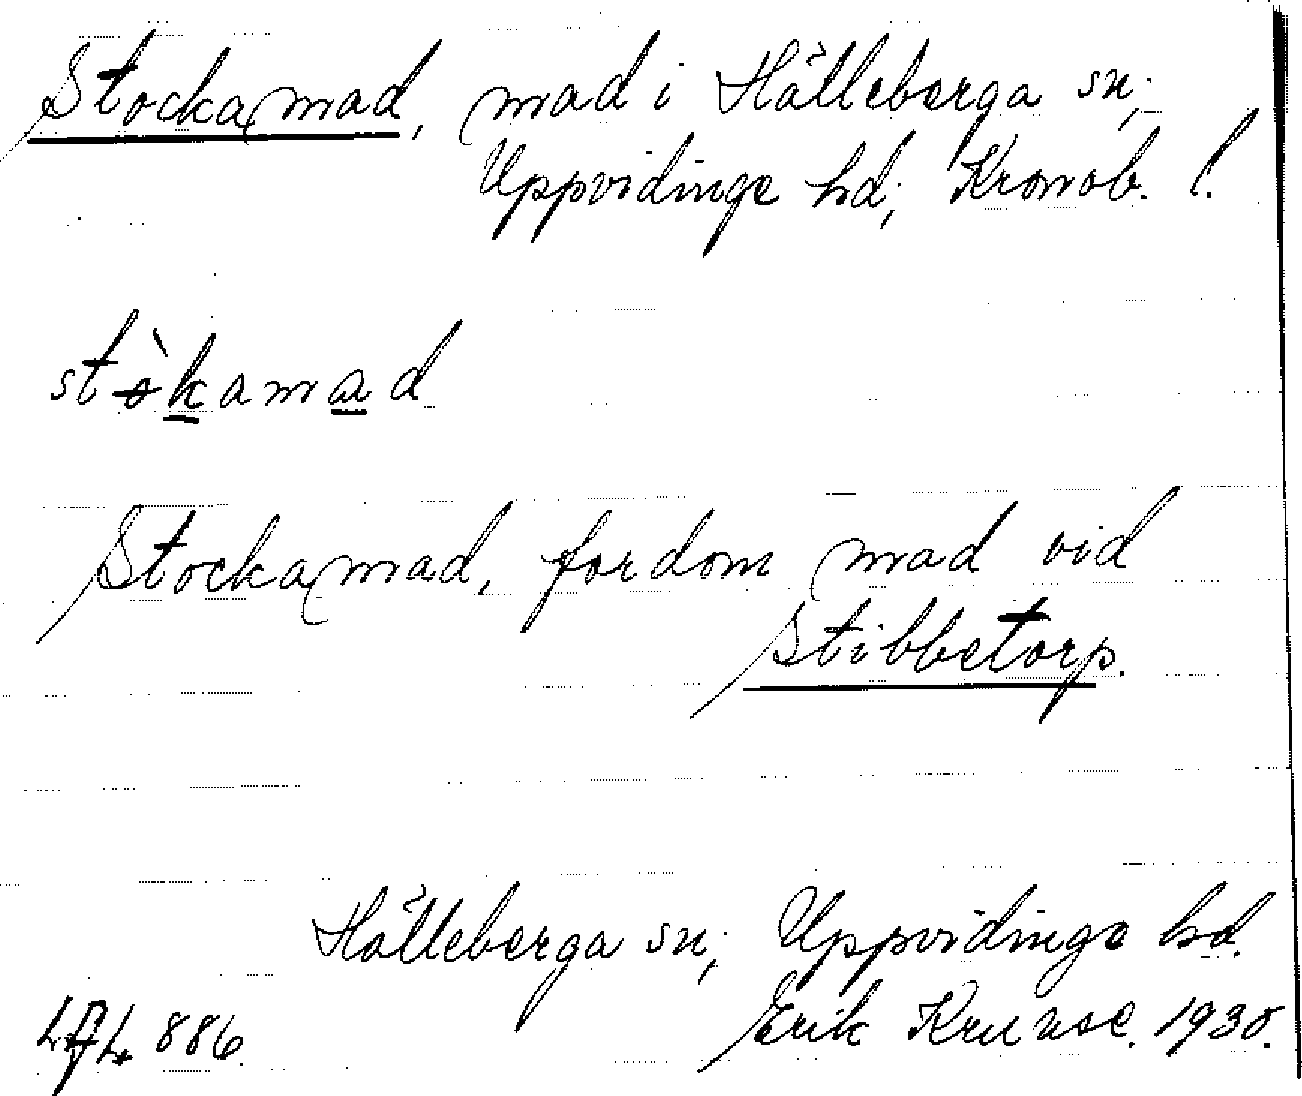 Stockamad, mad i Hälleberga sn;
Uppvidinge hd; Kronob. l.
stòkamad
Stockamad, fordom mad vid
Stibbetorp.
Hälleberga sn; Uppvidinge hd.
886. Erik Kruuse. 1930.